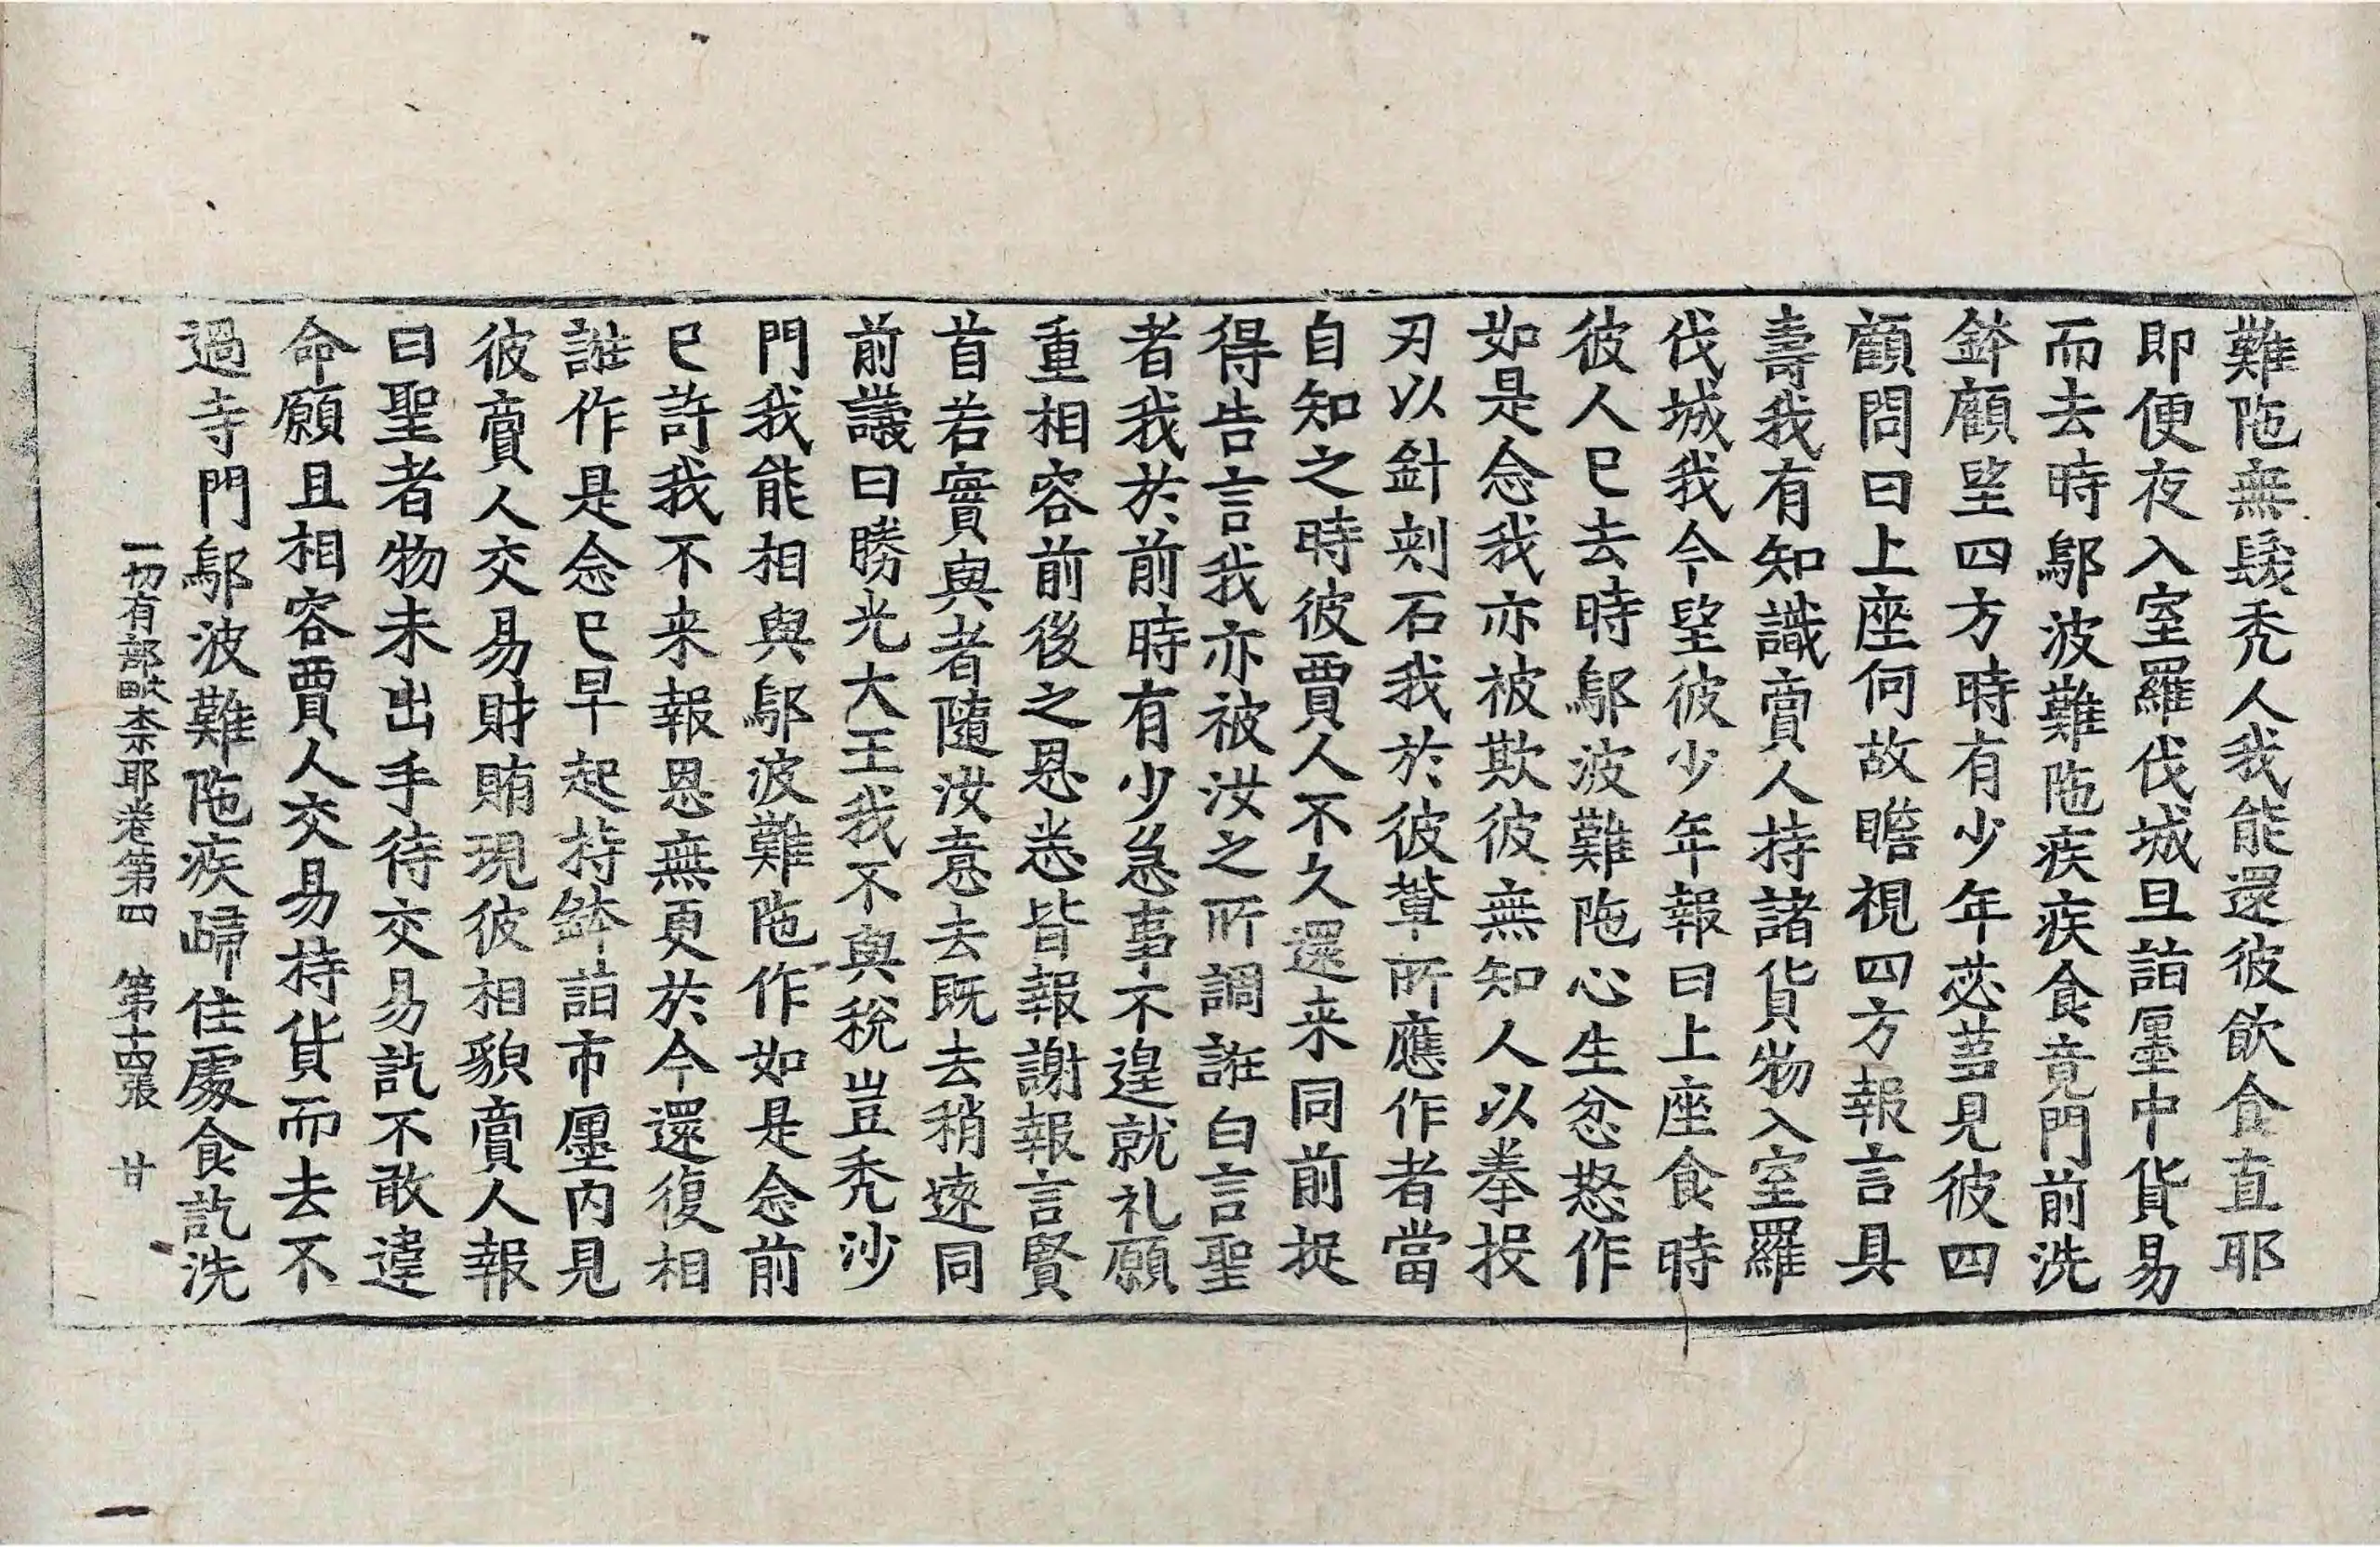 難陁無髮秃人我能還彼飲食直耶
即便夜入室羅伐城旦詣㕓中貨易
而去時鄔波難陁疾疾食竟門前洗
鉢顧望四方時有少年苾芻見彼四
顧問曰上座何故瞻視四方報言具
壽我有知識賣人持諸貨物入室羅
伐城我今望彼少年報曰上座食時
彼人已去時鄔波難陁心生忿怒作
如是念我亦被欺彼無知人以拳投
刃以針刾石我於彼輩所應作者當
自知之時彼賈人不久還来同前捉
得告言我亦被汝之所調誑白言聖
者我於前時有少急事不遑就礼願
重相容前後之恩悉皆報謝報言賢
首若實與者隨汝意去既去稍遠同
前議曰勝光大王我不與稅豈秃沙
門我能相與鄔波難陁作如是念前
已許我不来報恩無更於今還復相
誑作是念已早起持鉢詣市㕓内見
彼賣人交易財賄現彼相貌賣人報
曰聖者物未出手待交易訖不敢違
命願且相容賈人交易持貨而去不
過寺門鄔波難陁疾歸住處食訖洗
一切有部毗柰耶卷第四 第十四張 廿